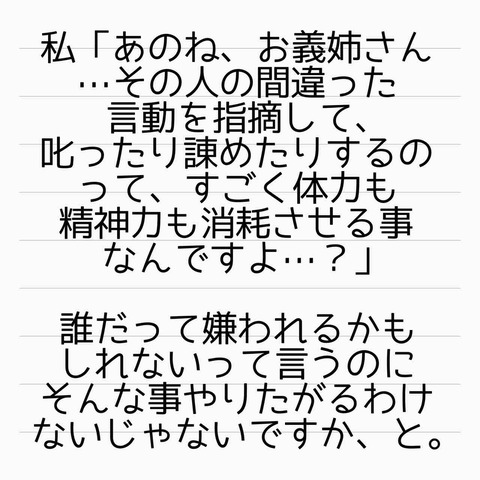 私「あのね、お義姉さん
…その人の間違った
言動を指摘して、
叱ったり諌めたりするの
って、すごく体力も
精神力も消耗させる事
なんですよ…？」
誰だって嫌われるかも
しれないって言うのに
そんな事やりたがるわけ
ないじゃないですか、と。